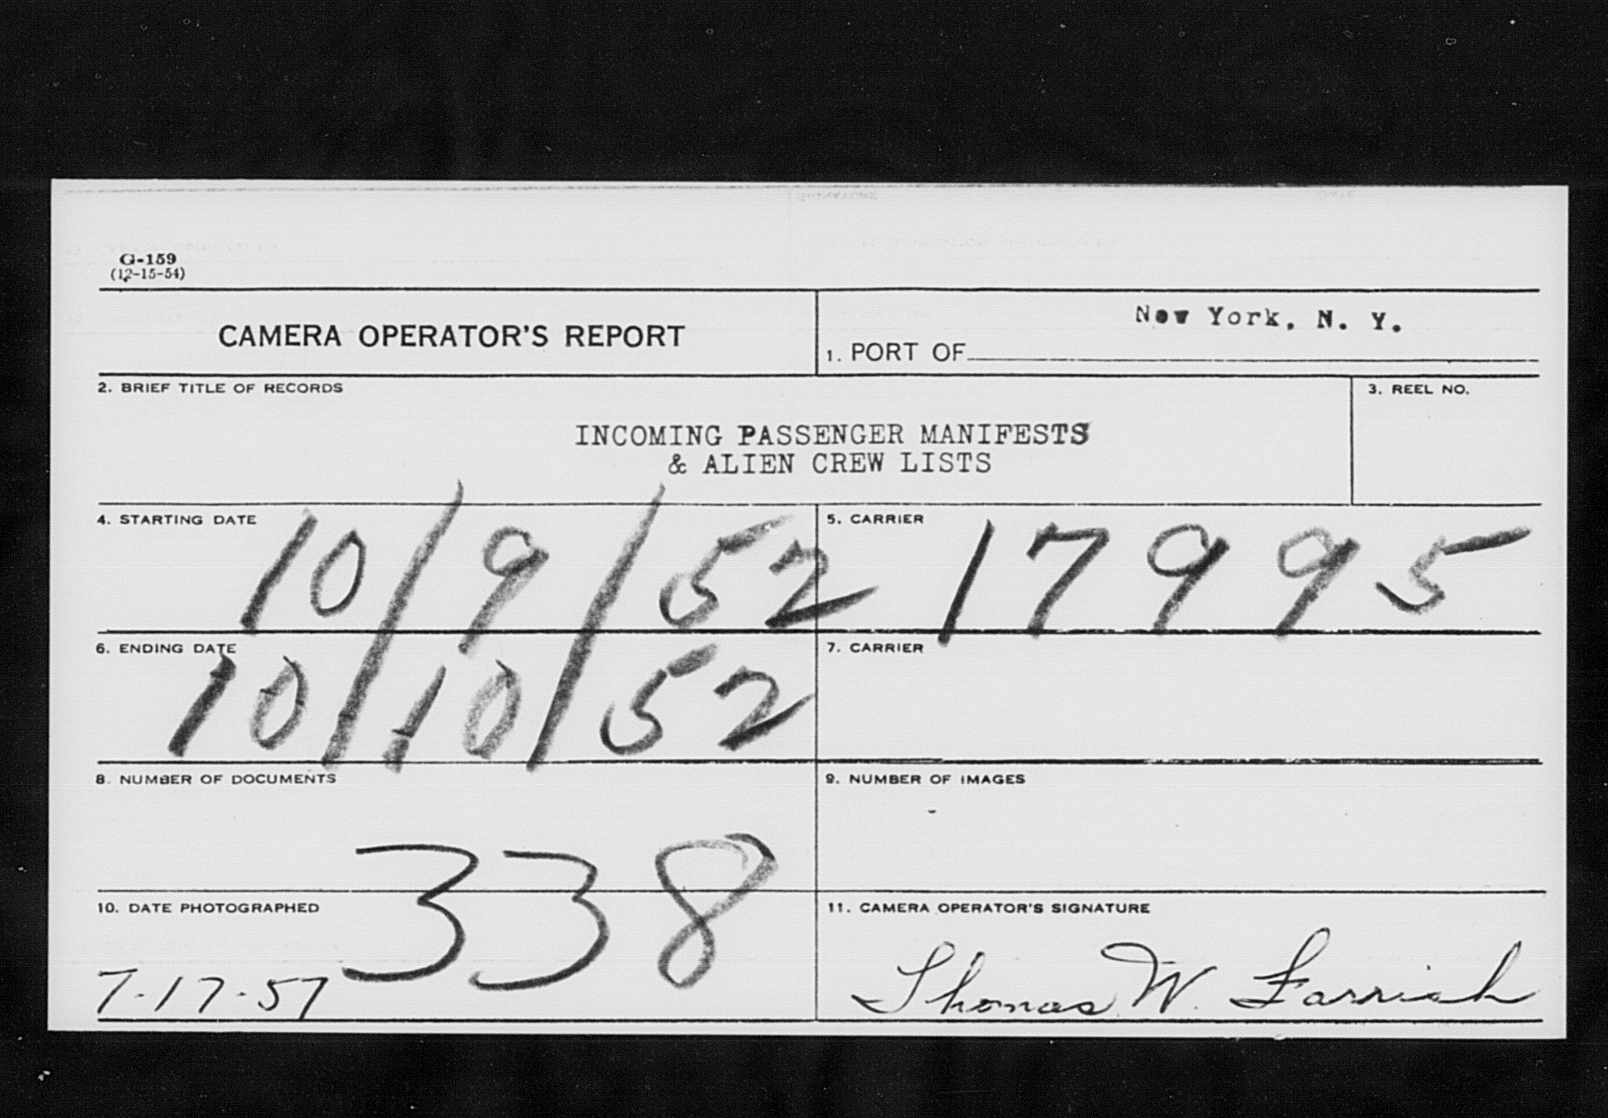 G-159
(12-15-54)
CAMERA OPERATOR'S REPORT
New York, N. Y.
1. PORT OF
2. BRIEF TITLE OF RECORDS
3. REEL NO.
INCOMING PASSENGER MANIFESTS
& ALIEN CREW LISTS
4. STARTING DATE
10/9/52
5. CARRIER
17995
6. ENDING DATE
10/10/52
7. CARRIER
8. NUMBER OF DOCUMENTS
338
9. NUMBER OF IMAGES
10. DATE PHOTOGRAPHED
7-17-57
11. CAMERA OPERATOR'S SIGNATURE
Thomas W. Farrish